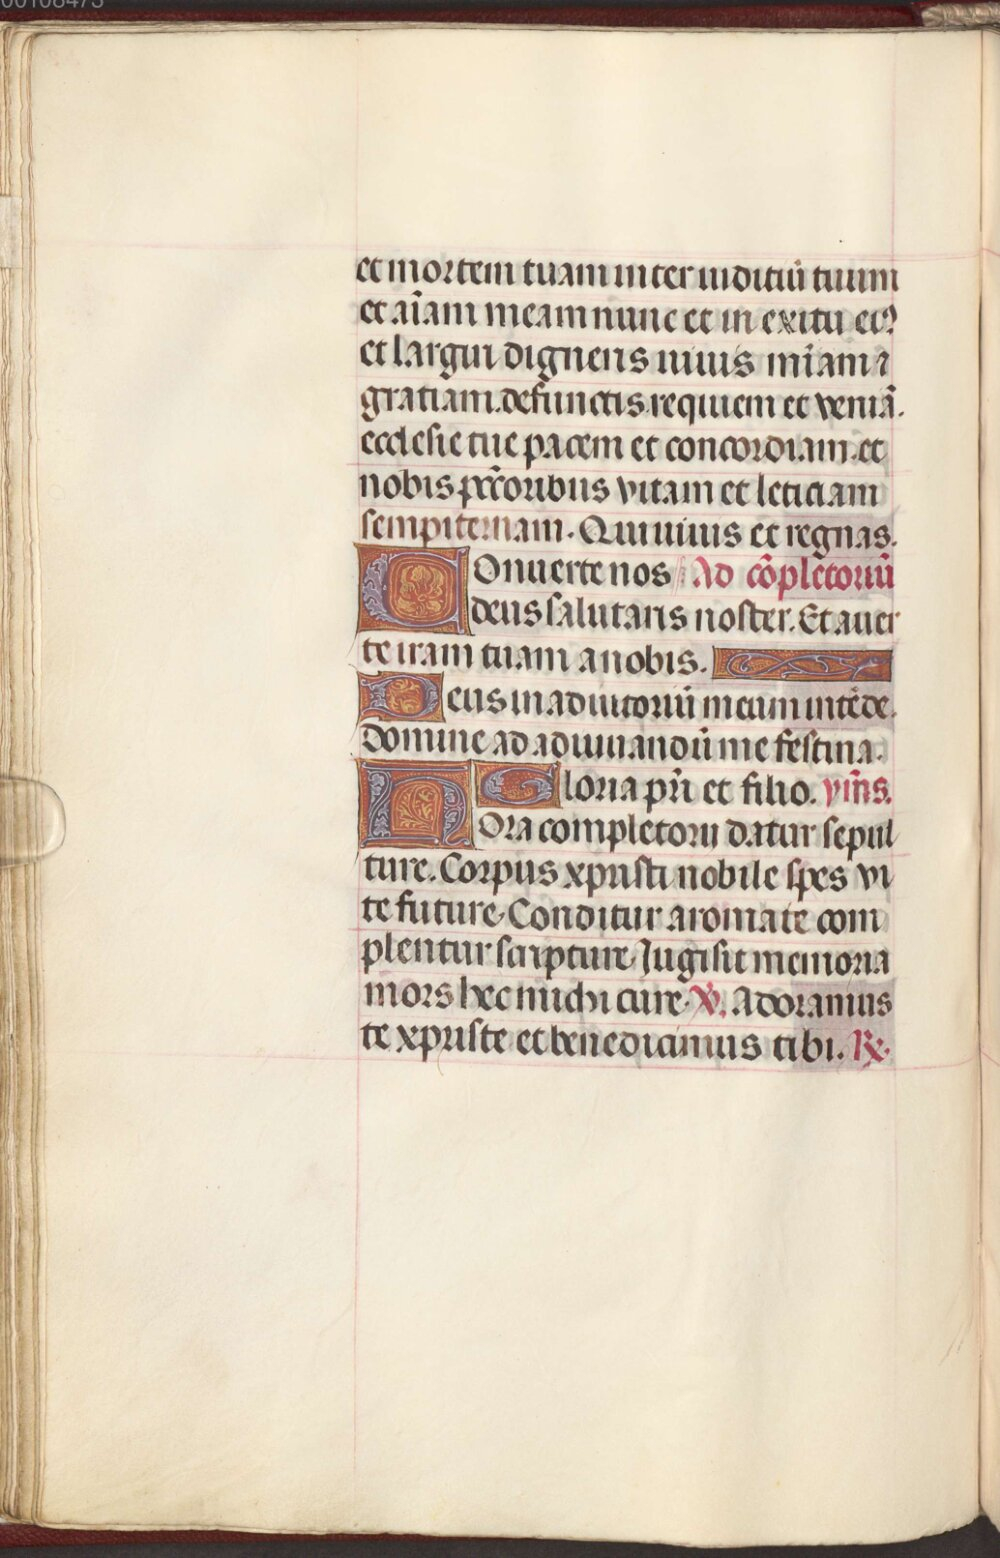 00108475
et mortem tuam inter iuditiū tuum
et aīam meam nunc et in exitu ei9
et largiri digneris uiuis mīam ⁊
gratiam. defunctis. requiem et veniā.
ecclesie tue pacem et concordiam. et
nobis pctōribus vitam et leticiam
sempiternam. Qui uiuis et regnas.
COnuerte nos Ad cōpletoriū
deus salutaris noster. Et auer
te iram tuam a nobis.
Deus in adiutoriū meum intēde.
Domine ad adiuuandū me festina.
Gloria pr̄i et filio. ym̄s.
HOra completorij datur sepul
ture. Corpus xpristi nobile spes vi
te future. Conditur aromate com
plentur scripture. Jugi sit memoria
mors hec michi cure. ℣. Adoramus
te xpriste et benedicimus tibi. ℟.